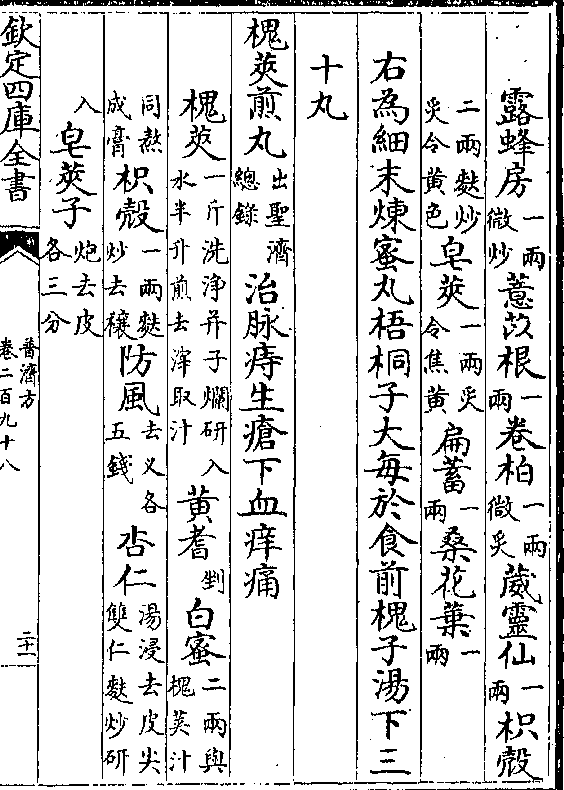 露蜂房一兩微炒薏苡根一兩卷柏一兩微炙葳靈仙一兩枳殼
二兩麩炒炙令黄色皂莢一兩炙令焦黄扁蓄一兩桑花葉一兩
右為細末煉蜜丸梧桐子大每於食前槐子湯下三
十丸
槐莢煎丸出聖濟總錄治脉痔生瘡下血痒痛
槐莢一斤洗淨并子爛研入水半升煎去滓取汁黄耆剉白蜜二兩與槐莢汁
同熬成膏枳殼一兩麩炒去穰防風去乂各五錢杏仁湯浸去皮尖雙仁麩炒研
入皂莢子炮去皮各三分
欽定四庫全書
普濟方
卷二百九十八
二十一